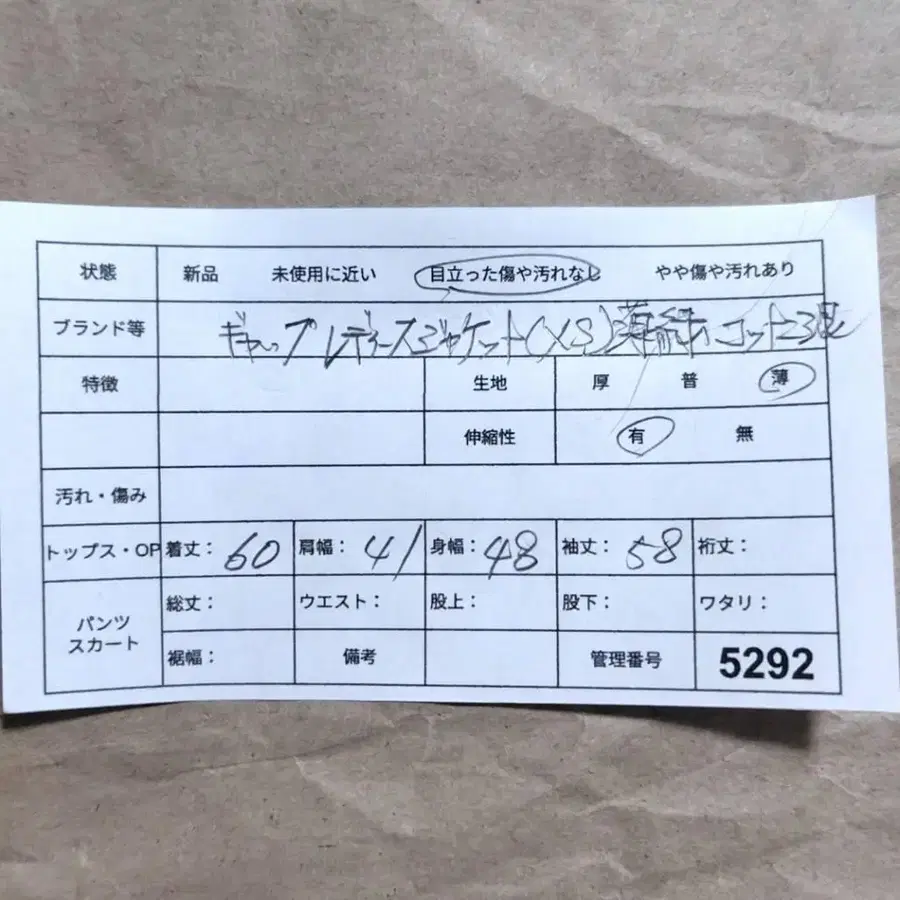 状態 新品 未使用に近い 目立った傷や汚れなし やや傷や汚れあり
ブランド等 ギャップ レディースジャケット(XS) コットン
特徴 生地 厚 普 薄
伸縮性 有 無
汚れ・傷み
トップス・OP 着丈: 60 肩幅: 41 身幅: 48 袖丈: 58 裄丈:
パンツ スカート 総丈: ウエスト: 股上: 股下: ワタリ:
裾幅: 備考 管理番号 5292